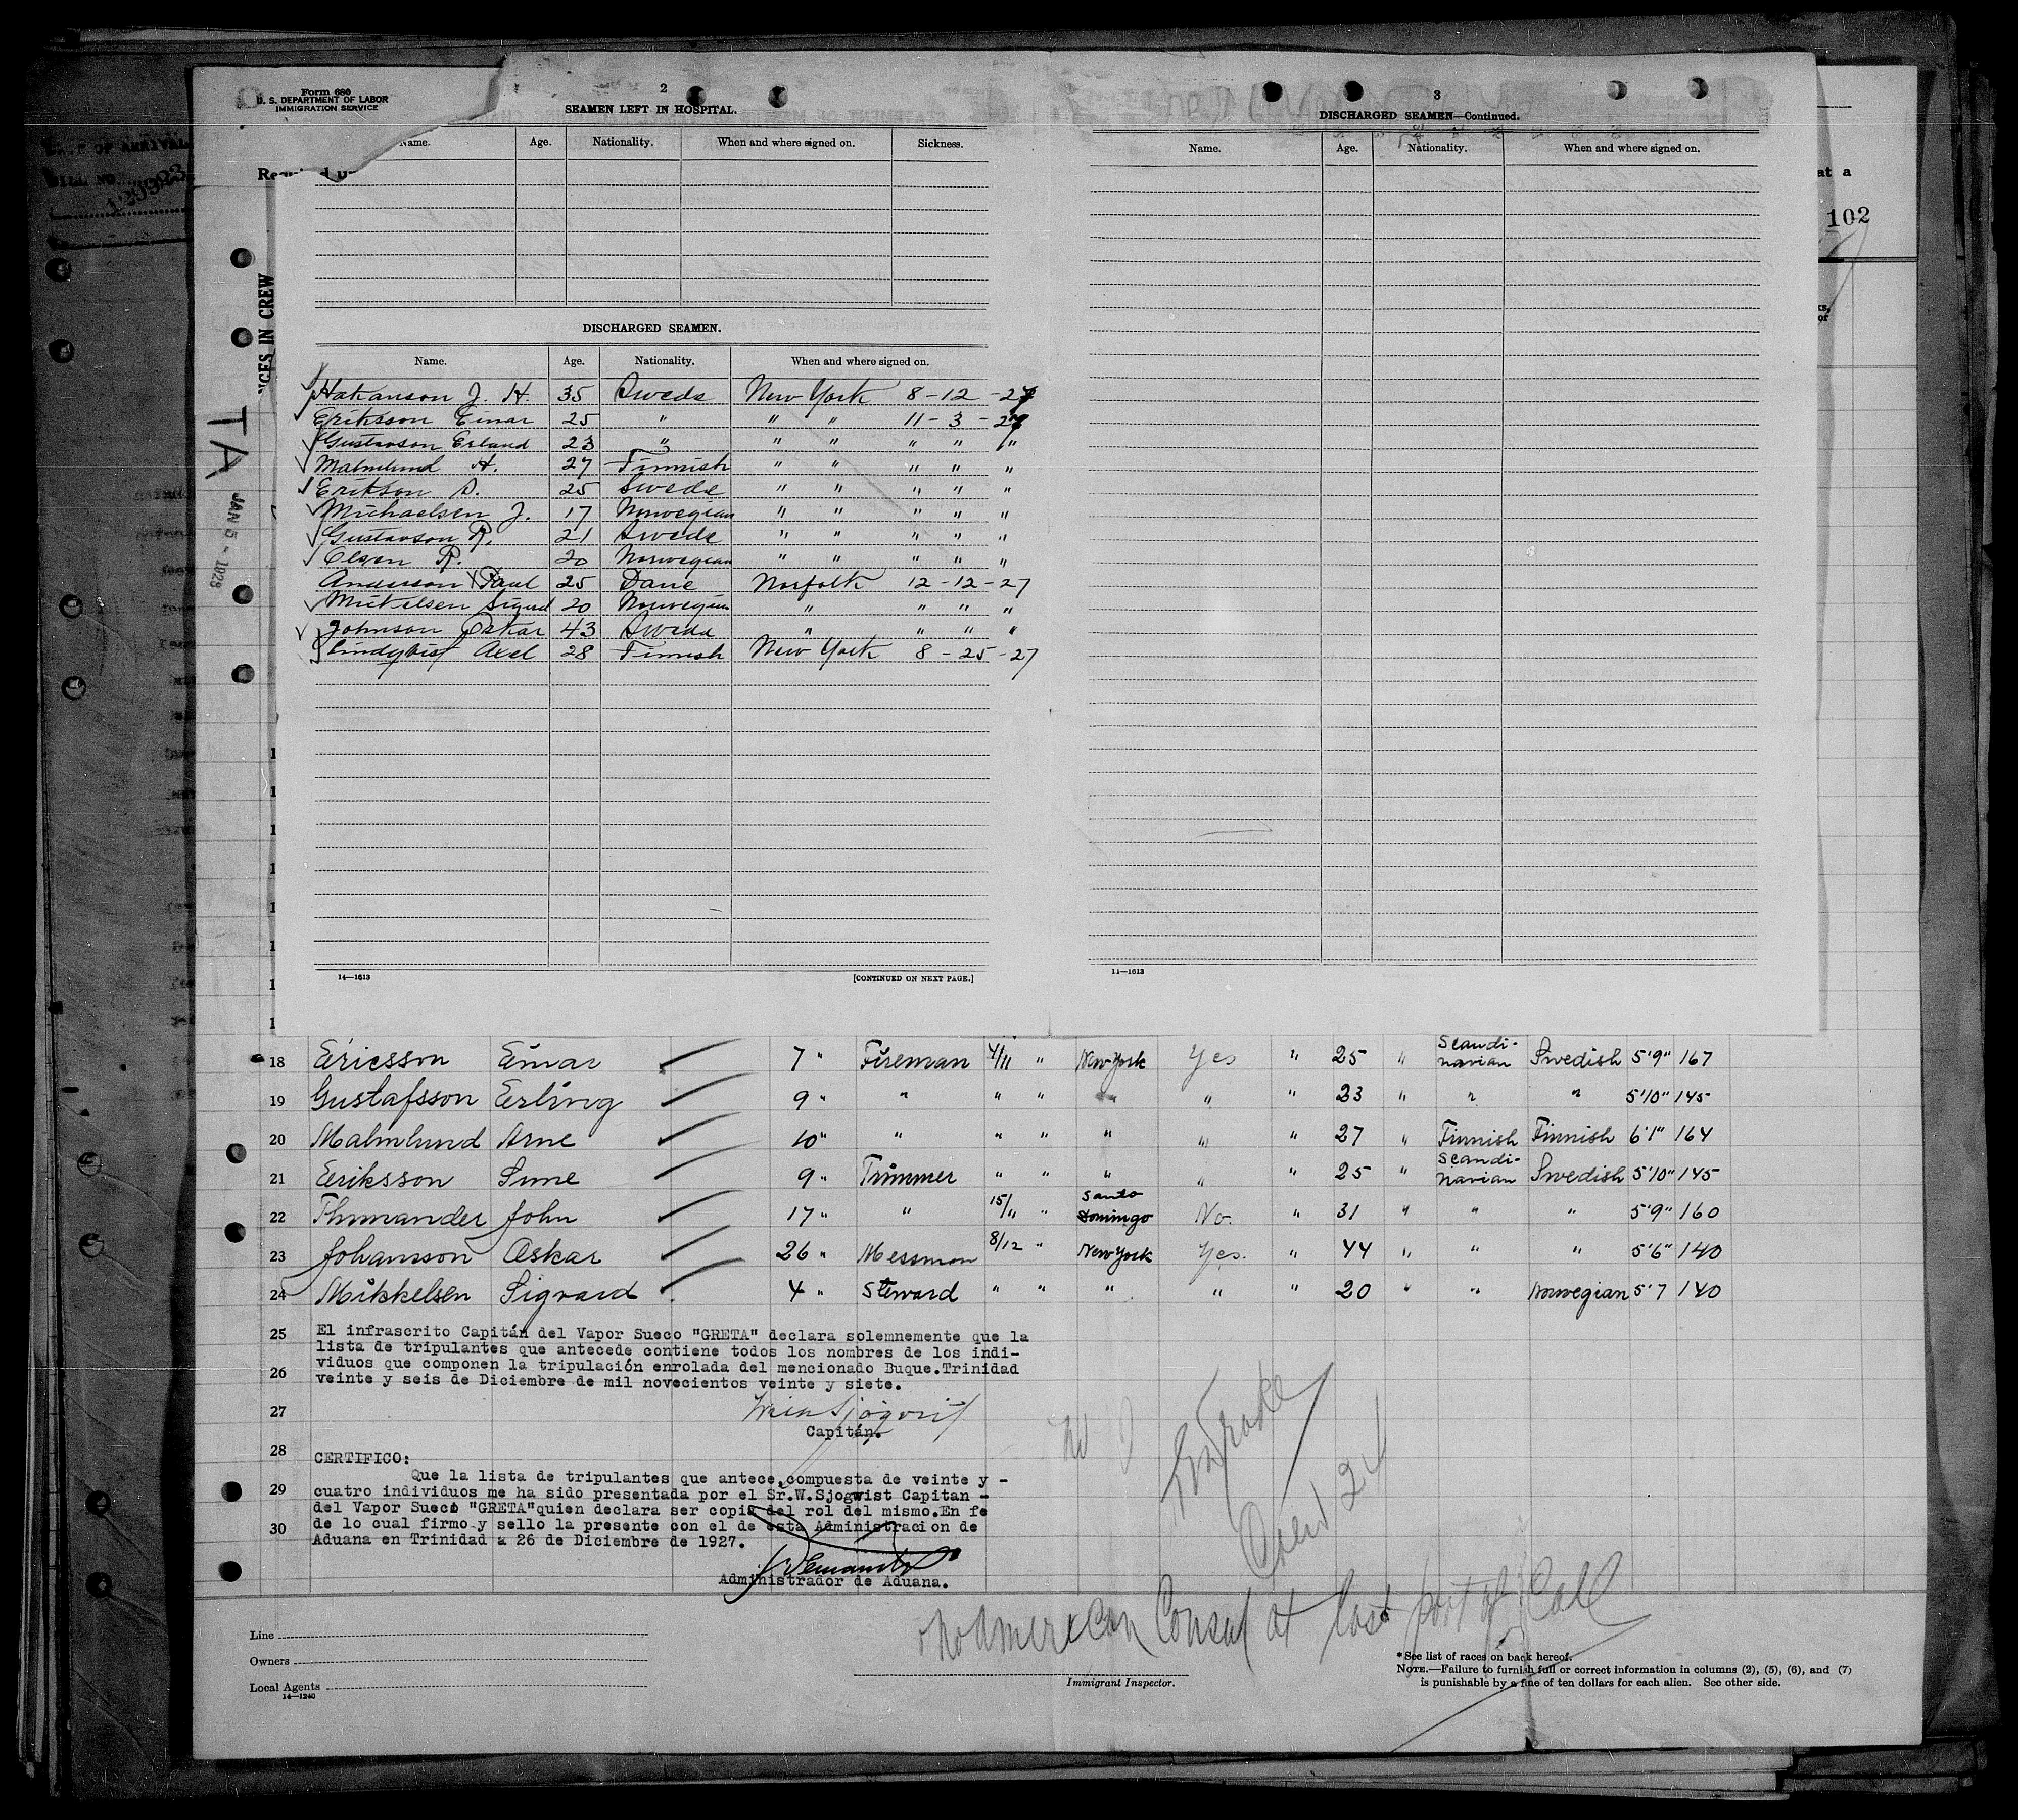 Form 680
U. S. DEPARTMENT OF LABOR
IMMIGRATION SERVICE
2
SEAMEN LEFT IN HOSPITAL.
Name. Age. Nationality. When and where signed on. Sickness.
DISCHARGED SEAMEN.
Name. Age. Nationality. When and where signed on.
Hakanson J. H. 35 Swede New York 8-12-27
Eriksson Einar 25 " " " 11-3-27
Gustavson Erland 23 " " " " " "
Malmlund A. 27 Finnish " " " " "
Erikson S. 25 Swede " " " " "
Michaelsen J. 17 Norwegian " " " " "
Gustavson R. 21 Swede " " " " "
Olsen R. 20 Norwegian " " " " "
Anderson Paul 25 Dane Norfolk 12-12-27
Mickelsen Sigurd 20 Norwegian " " " "
Johnson Oskar 43 Swede " " " "
Lindqvist Axel 28 Finnish New York 8-25-27
14—1613 [CONTINUED ON NEXT PAGE.]
3
DISCHARGED SEAMEN—Continued.
Name. Age. Nationality. When and where signed on.
14—1613
at a
102
DATE OF ARRIVAL
129923
NGES IN CREW
TA
JAN 5 - 1928
18 Ericsson Einar 7 " Fireman 4/11 " New York Yes " 25 " Scandinavian Swedish 5'9" 167
19 Gustafsson Erling 9 " " " " " " " 23 " " " 5'10" 145
20 Malmlund Arne 10 " " " " " " " 27 " Finnish Finnish 6'1" 164
21 Eriksson Sune 9 " Trimmer " " " " " 25 " Scandinavian Swedish 5'10" 145
22 Thunander John 17 " " 15/11 " Santo Domingo No. " 31 " " " 5'9" 160
23 Johansson Oskar 26 " Messman 8/12 " New York Yes. " 44 " " " 5'6" 140
24 Mikkelsen Sigvard 4 " Steward " " " " " 20 " " Norwegian 5'7 140
25 El infrascrito Capitán del Vapor Sueco "GRETA" declara solemnemente que la
lista de tripulantes que antecede contiene todos los nombres de los indi-
viduos que componen la tripulación enrolada del mencionado Buque.Trinidad
26 veinte y seis de Diciembre de mil novecientos veinte y siete.
27
Capitán.
28 CERTIFICO:
Que la lista de tripulantes que antece,compuesta de veinte y -
29 cuatro individuos me ha sido presentada por el Sr.W.Sjogwist Capitan -
del Vapor Sueco "GRETA"quien declara ser copia del rol del mismo.En fe
30 de lo cual firmo y sello la presente con el de esta Administracion de
Aduana en Trinidad a 26 de Diciembre de 1927.
Administrador de Aduana.
No American Consul at last port of Call
Line
Owners
Local Agents
14—1240
Immigrant Inspector.
* See list of races on back hereof.
NOTE.—Failure to furnish full or correct information in columns (2), (5), (6), and (7)
is punishable by a fine of ten dollars for each alien. See other side.